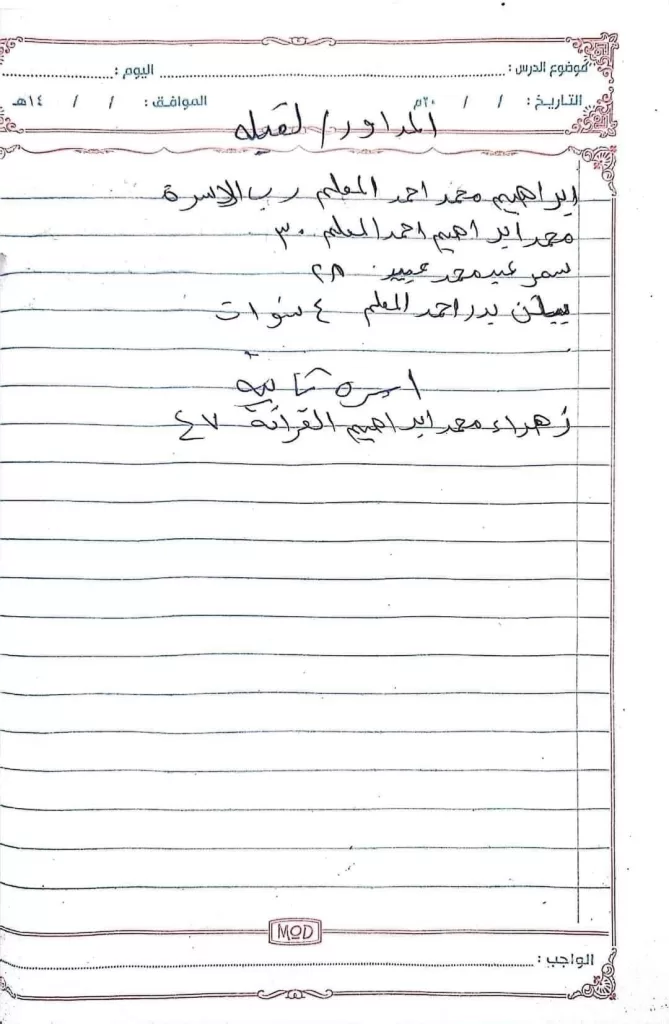 موضوع الدرس : اليوم :
التاريخ : / / ٢٠م الموافق : / / ١٤هـ
المداور / لقبله
ابراهيم محمد احمد المعلم رب الاسرة
محمد ابراهيم احمد المعلم ٣٠
سمر عيد محمد عبيد ٢٨
بدر احمد المعلم ٤ سنوات
اسره ثانيه
زهراء محمد ابراهيم ٤٧
MOD
الواجب :